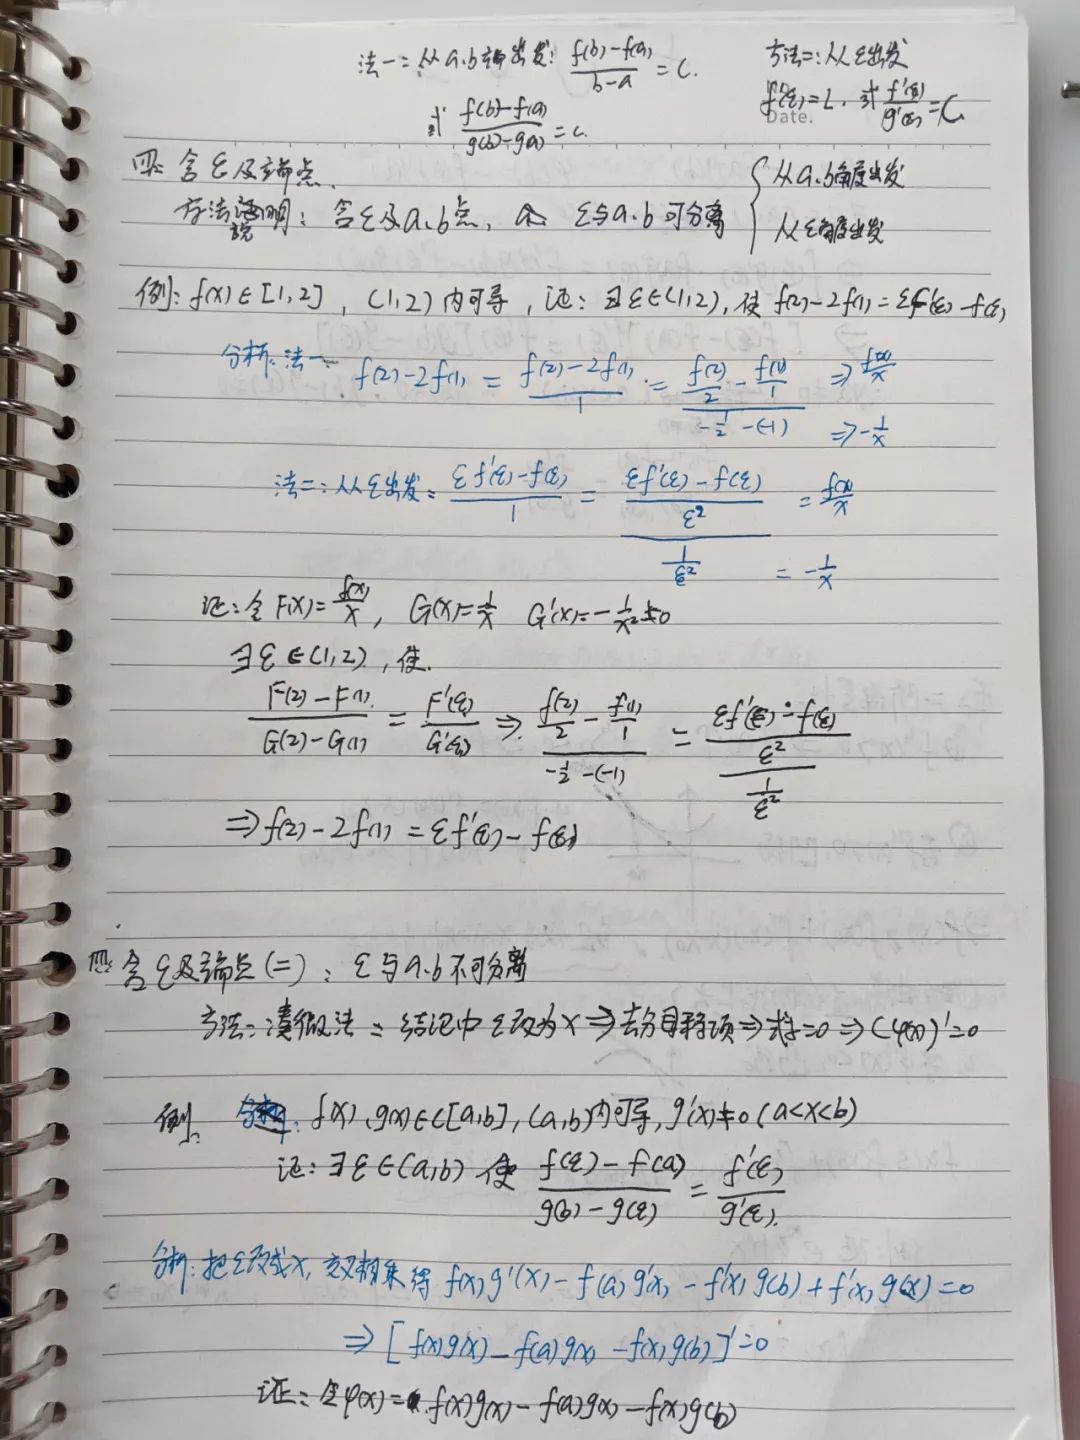 法一:从a.b端出发: (f(b)-f(a))/(b-a) = C.
或 (f(b)-f(a))/(g(b)-g(a)) = C.
方法二:从ξ出发
f'(ξ)=C. 或 f'(ξ)/g'(ξ) = C.
Date.
四: 含ξ及端点.
方法说明: 含ξ及a.b点, ξ与a.b可分离 { 从a.b角度出发
从ξ角度出发
例: f(x)∈[1,2], (1,2)内可导, 证: ∃ξ∈(1,2), 使 f(2)-2f(1)=ξf'(ξ)-f(ξ)
分析: 法一 f(2)-2f(1) = (f(2)-2f(1))/1 = (f(2)/2 - f(1)/1)/(-1/2-(-1)) ⇒ f(x)/x
⇒ -1/x
法二: 从ξ出发: (ξf'(ξ)-f(ξ))/1 = ((ξf'(ξ)-f(ξ))/ξ²)/(1/ξ²) = f(x)/x
= -1/x
证: 令F(x)=f(x)/x, G(x)=1/x G'(x)=-1/x²≠0
∃ξ∈(1,2), 使.
(F(2)-F(1))/(G(2)-G(1)) = F'(ξ)/G'(ξ) ⇒ (f(2)/2 - f(1)/1)/(-1/2-(-1)) = ((ξf'(ξ)-f(ξ))/ξ²)/(1/ξ²)
⇒ f(2)-2f(1) = ξf'(ξ)-f(ξ)
四: 含ξ及端点(二): ξ与a.b不可分离
方法: 凑微法: 结论中ξ改为x ⇒ 去分母移项 ⇒ 式子=0 ⇒ (φ(x))'=0
例. f(x)、g(x)∈C[a,b], (a,b)内可导, g'(x)≠0 (a<x<b)
证: ∃ξ∈(a,b) 使 (f(ξ)-f(a))/(g(b)-g(ξ)) = f'(ξ)/g'(ξ).
分析: 把ξ改成x, 交叉相乘得 f(x)g'(x)-f(a)g'(x)-f'(x)g(b)+f'(x)g(x)=0
⇒ [f(x)g(x)-f(a)g(x)-f(x)g(b)]'=0
证: 令φ(x)= f(x)g(x)-f(a)g(x)-f(x)g(b)